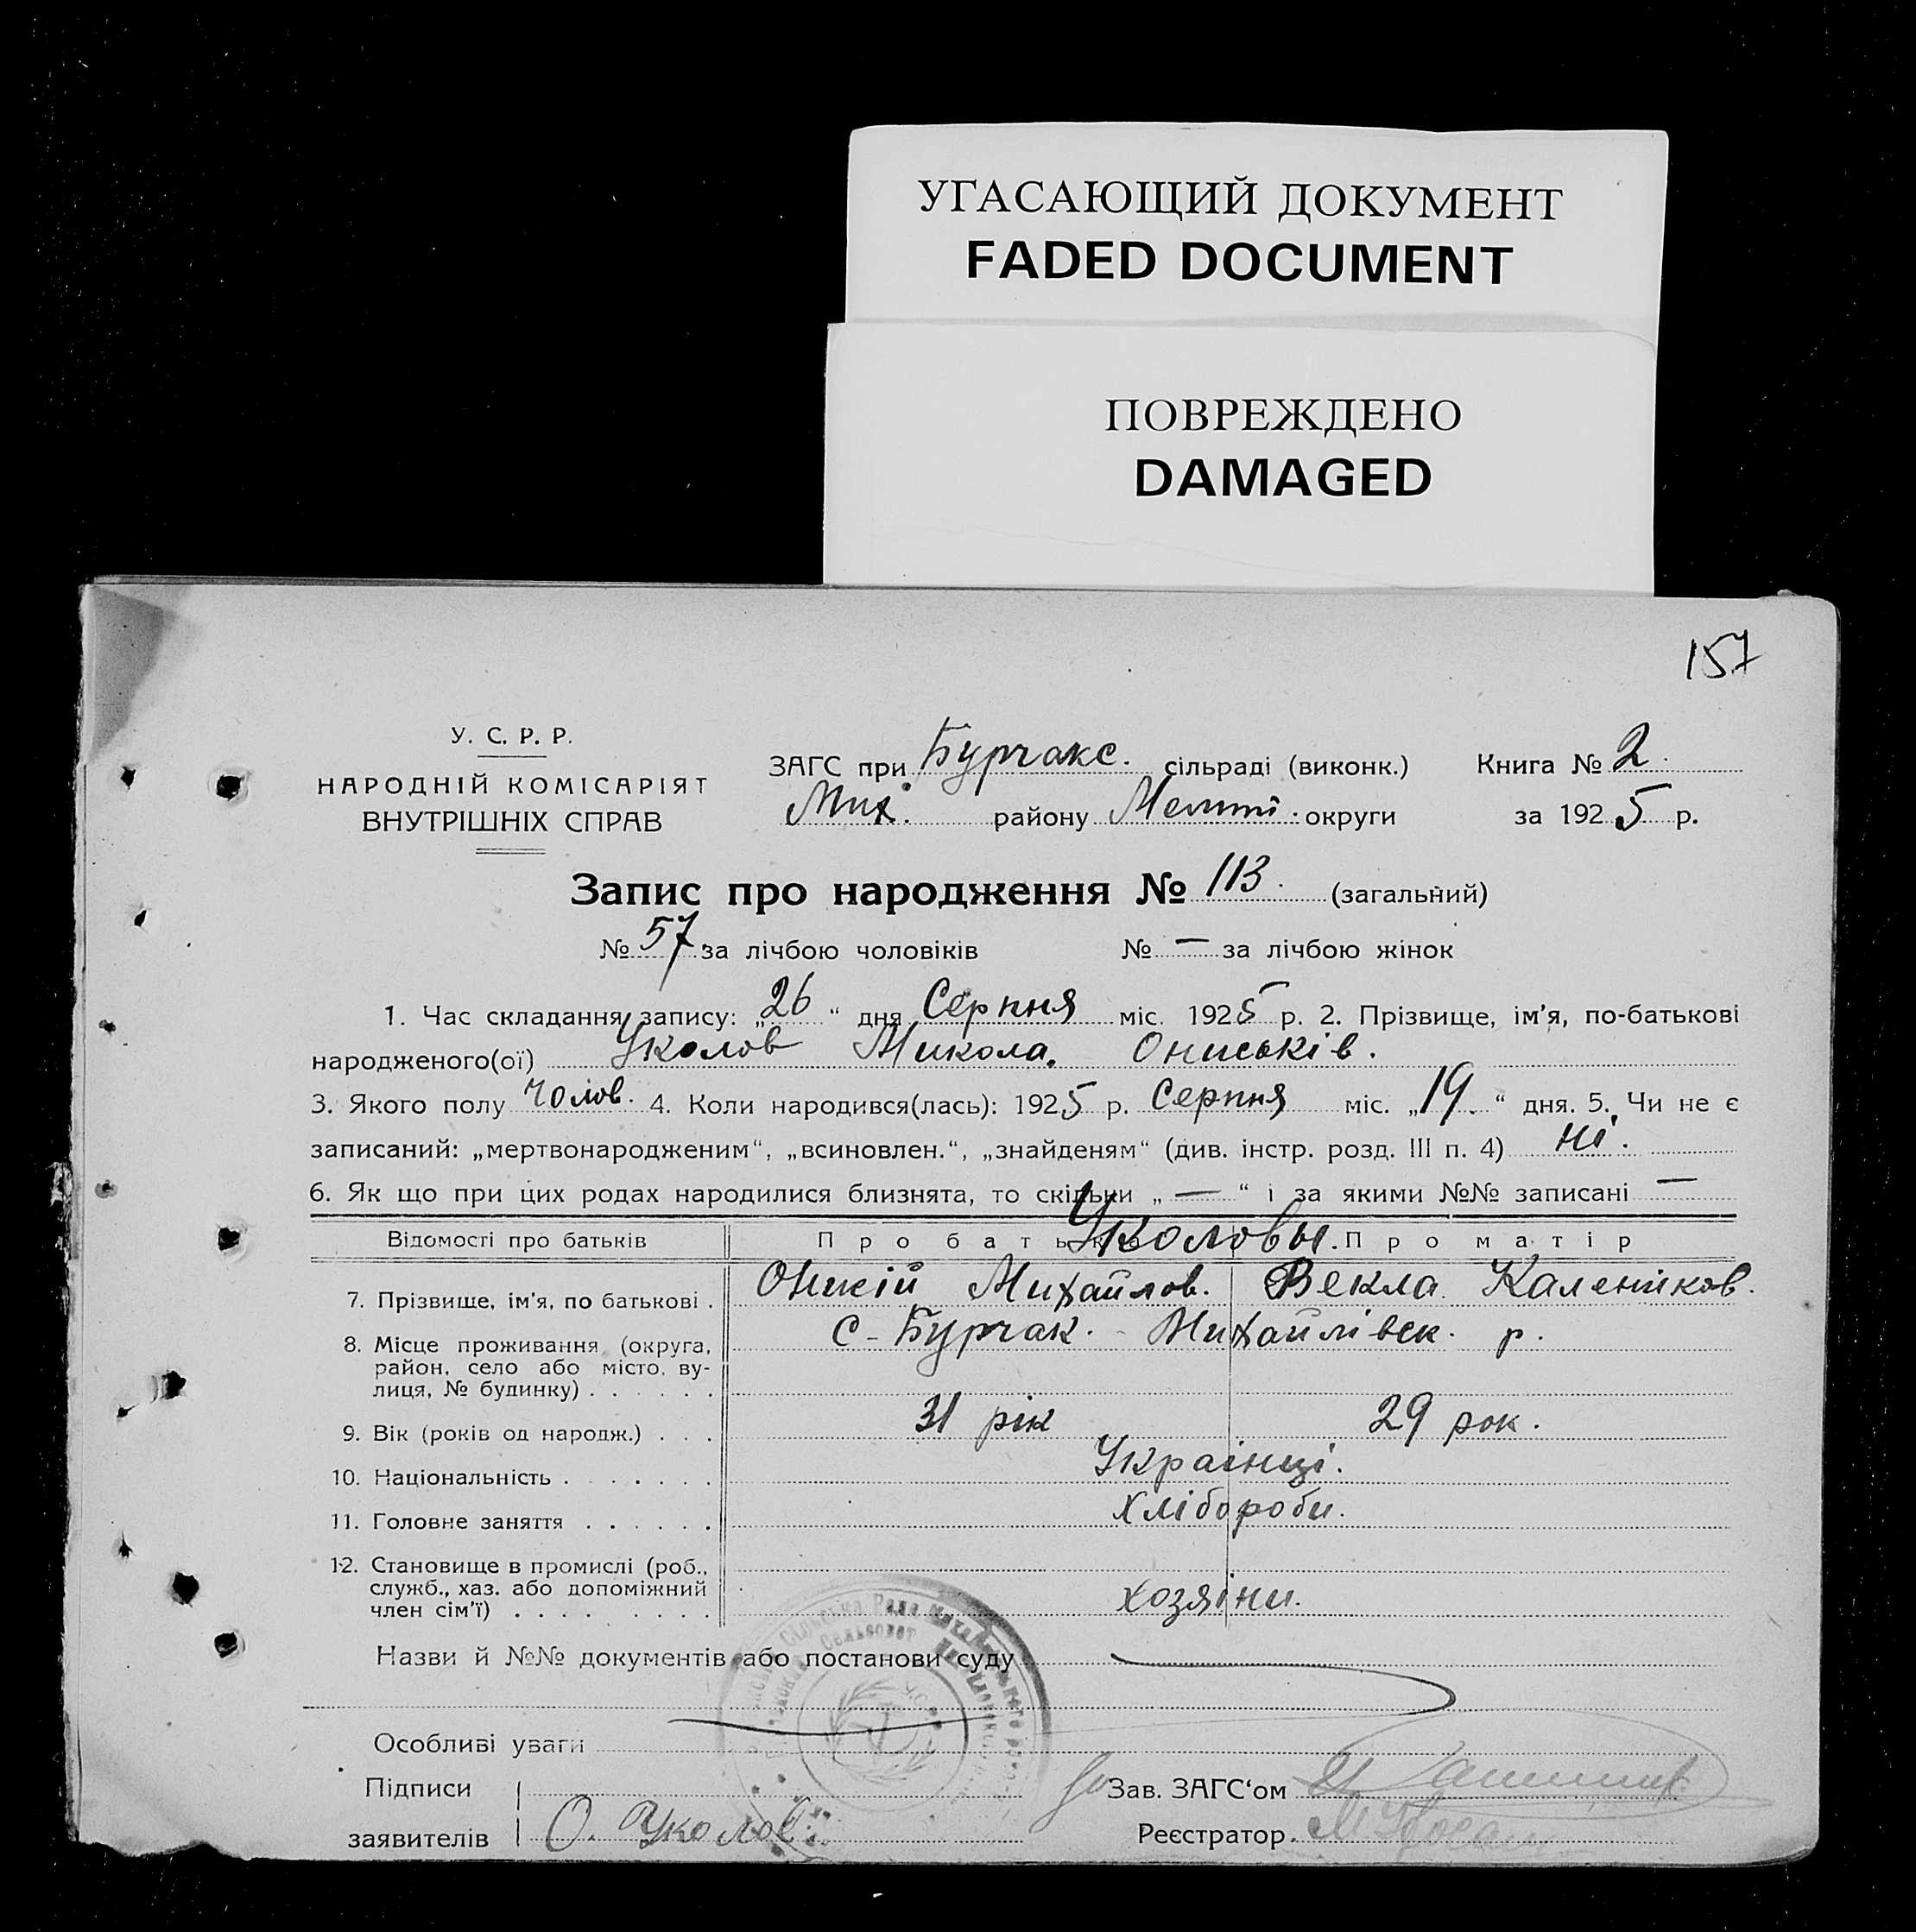 УГАСАЮЩИЙ ДОКУМЕНТ
FADED DOCUMENT
ПОВРЕЖДЕНО
DAMAGED
157
У. С. Р. Р.
НАРОДНІЙ КОМІСАРІЯТ
ВНУТРІШНІХ СПРАВ
ЗАГС при Бурчакс. сільраді (виконк.) Книга № 2.
Мих. району Мелит. округи за 1925 р.
Запис про народження № 113. (загальний)
№ 57 за лічбою чоловіків № — за лічбою жінок
1. Час складання запису: „26“ дня Серпня міс. 1925 р. 2. Прізвище, ім'я, по-батькові
народженого(ої) Уколов Микола. Ониськів.
3. Якого полу чолов. 4. Коли народився(лась): 1925 р. Серпня міс. „19.“ дня. 5. Чи не є
записаний: „мертвонародженим“, „всиновлен.“, „знайденям“ (див. інстр. розд. III п. 4) ні.
6. Як що при цих родах народилися близнята, то скільки „—“ і за якими №№ записані —
Відомості про батьків Про батька Уколовы. Про матір
7. Прізвище, ім'я, по батькові . Онисій Михайлов. Векла Калеників.
8. Місце проживання (округа, С-Бурчак. - Михайлівск. р.
район, село або місто, ву-
лиця, № будинку) . . . . . .
9. Вік (років од народж.) . . . 31 рік 29 рок.
10. Національність . . . . . . Українці.
11. Головне заняття . . . . . . хлібороби.
12. Становище в промислі (роб.,
служб., хаз. або допоміжний хозяіни.
член сім'ї) . . . . . . . .
Назви й №№ документів або постанови суду
Особливі уваги
Підписи Зав. ЗАГС'ом
заявителів О. Уколов. Реєстратор.